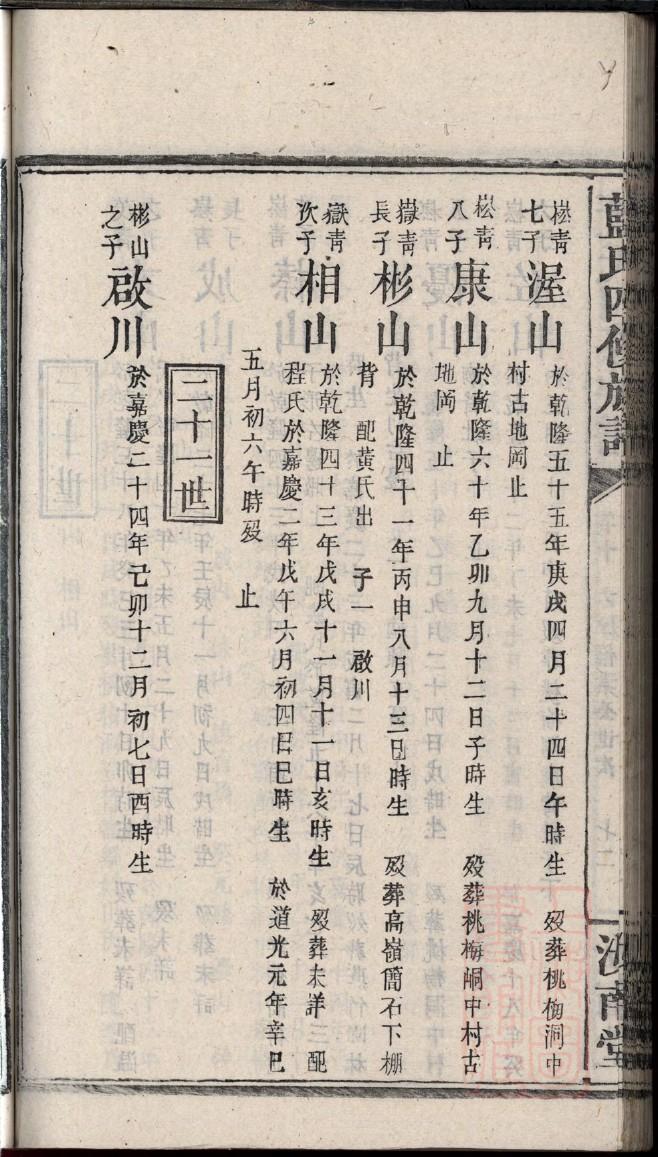 藍氏四修族譜
汝南堂
崧青七子 渥山 於乾隆五十五年庚戌四月二十四日午時生 歿葬桃梅洞中
村古地岡止
崧青八子 康山 於乾隆六十年乙卯九月十二日子時生 歿葬桃梅峒中村古
地岡 止
嶽青長子 彬山 於乾隆四十一年丙申八月十三巳時生 歿葬高嶺筒石下棚
背 配黃氏出 子一 啟川
嶽青次子 相山 於乾隆四十三年戊戌十一月十一日亥時生 歿葬未詳 三配
程氏於嘉慶二年戊午六月初四日巳時生 於道光元年辛巳
五月初六午時歿 止
二十一世
彬山之子 啟川 於嘉慶二十四年己卯十二月初七日酉時生